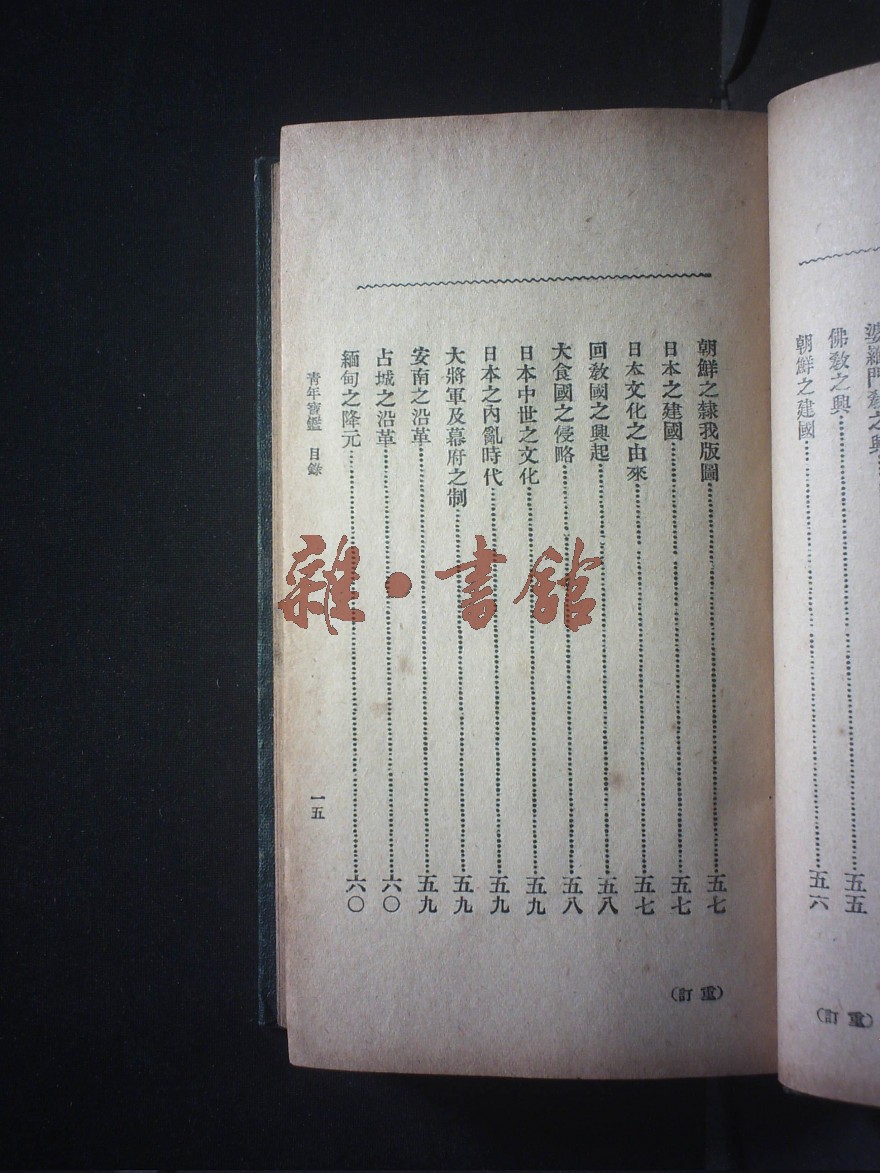 婆羅門教之興
佛教之興 五五
朝鮮之建國 五六
(重訂)
朝鮮之隸我版圖 五七
日本之建國 五七
日本文化之由來 五七
回教國之興起 五八
大食國之侵略 五八
日本中世之文化 五九
日本之內亂時代 五九
大將軍及幕府之制 五九
安南之沿革 五九
占城之沿革 六〇
緬甸之降元 六〇
青年寶鑑 目錄
一五
(重訂)
雜·書館